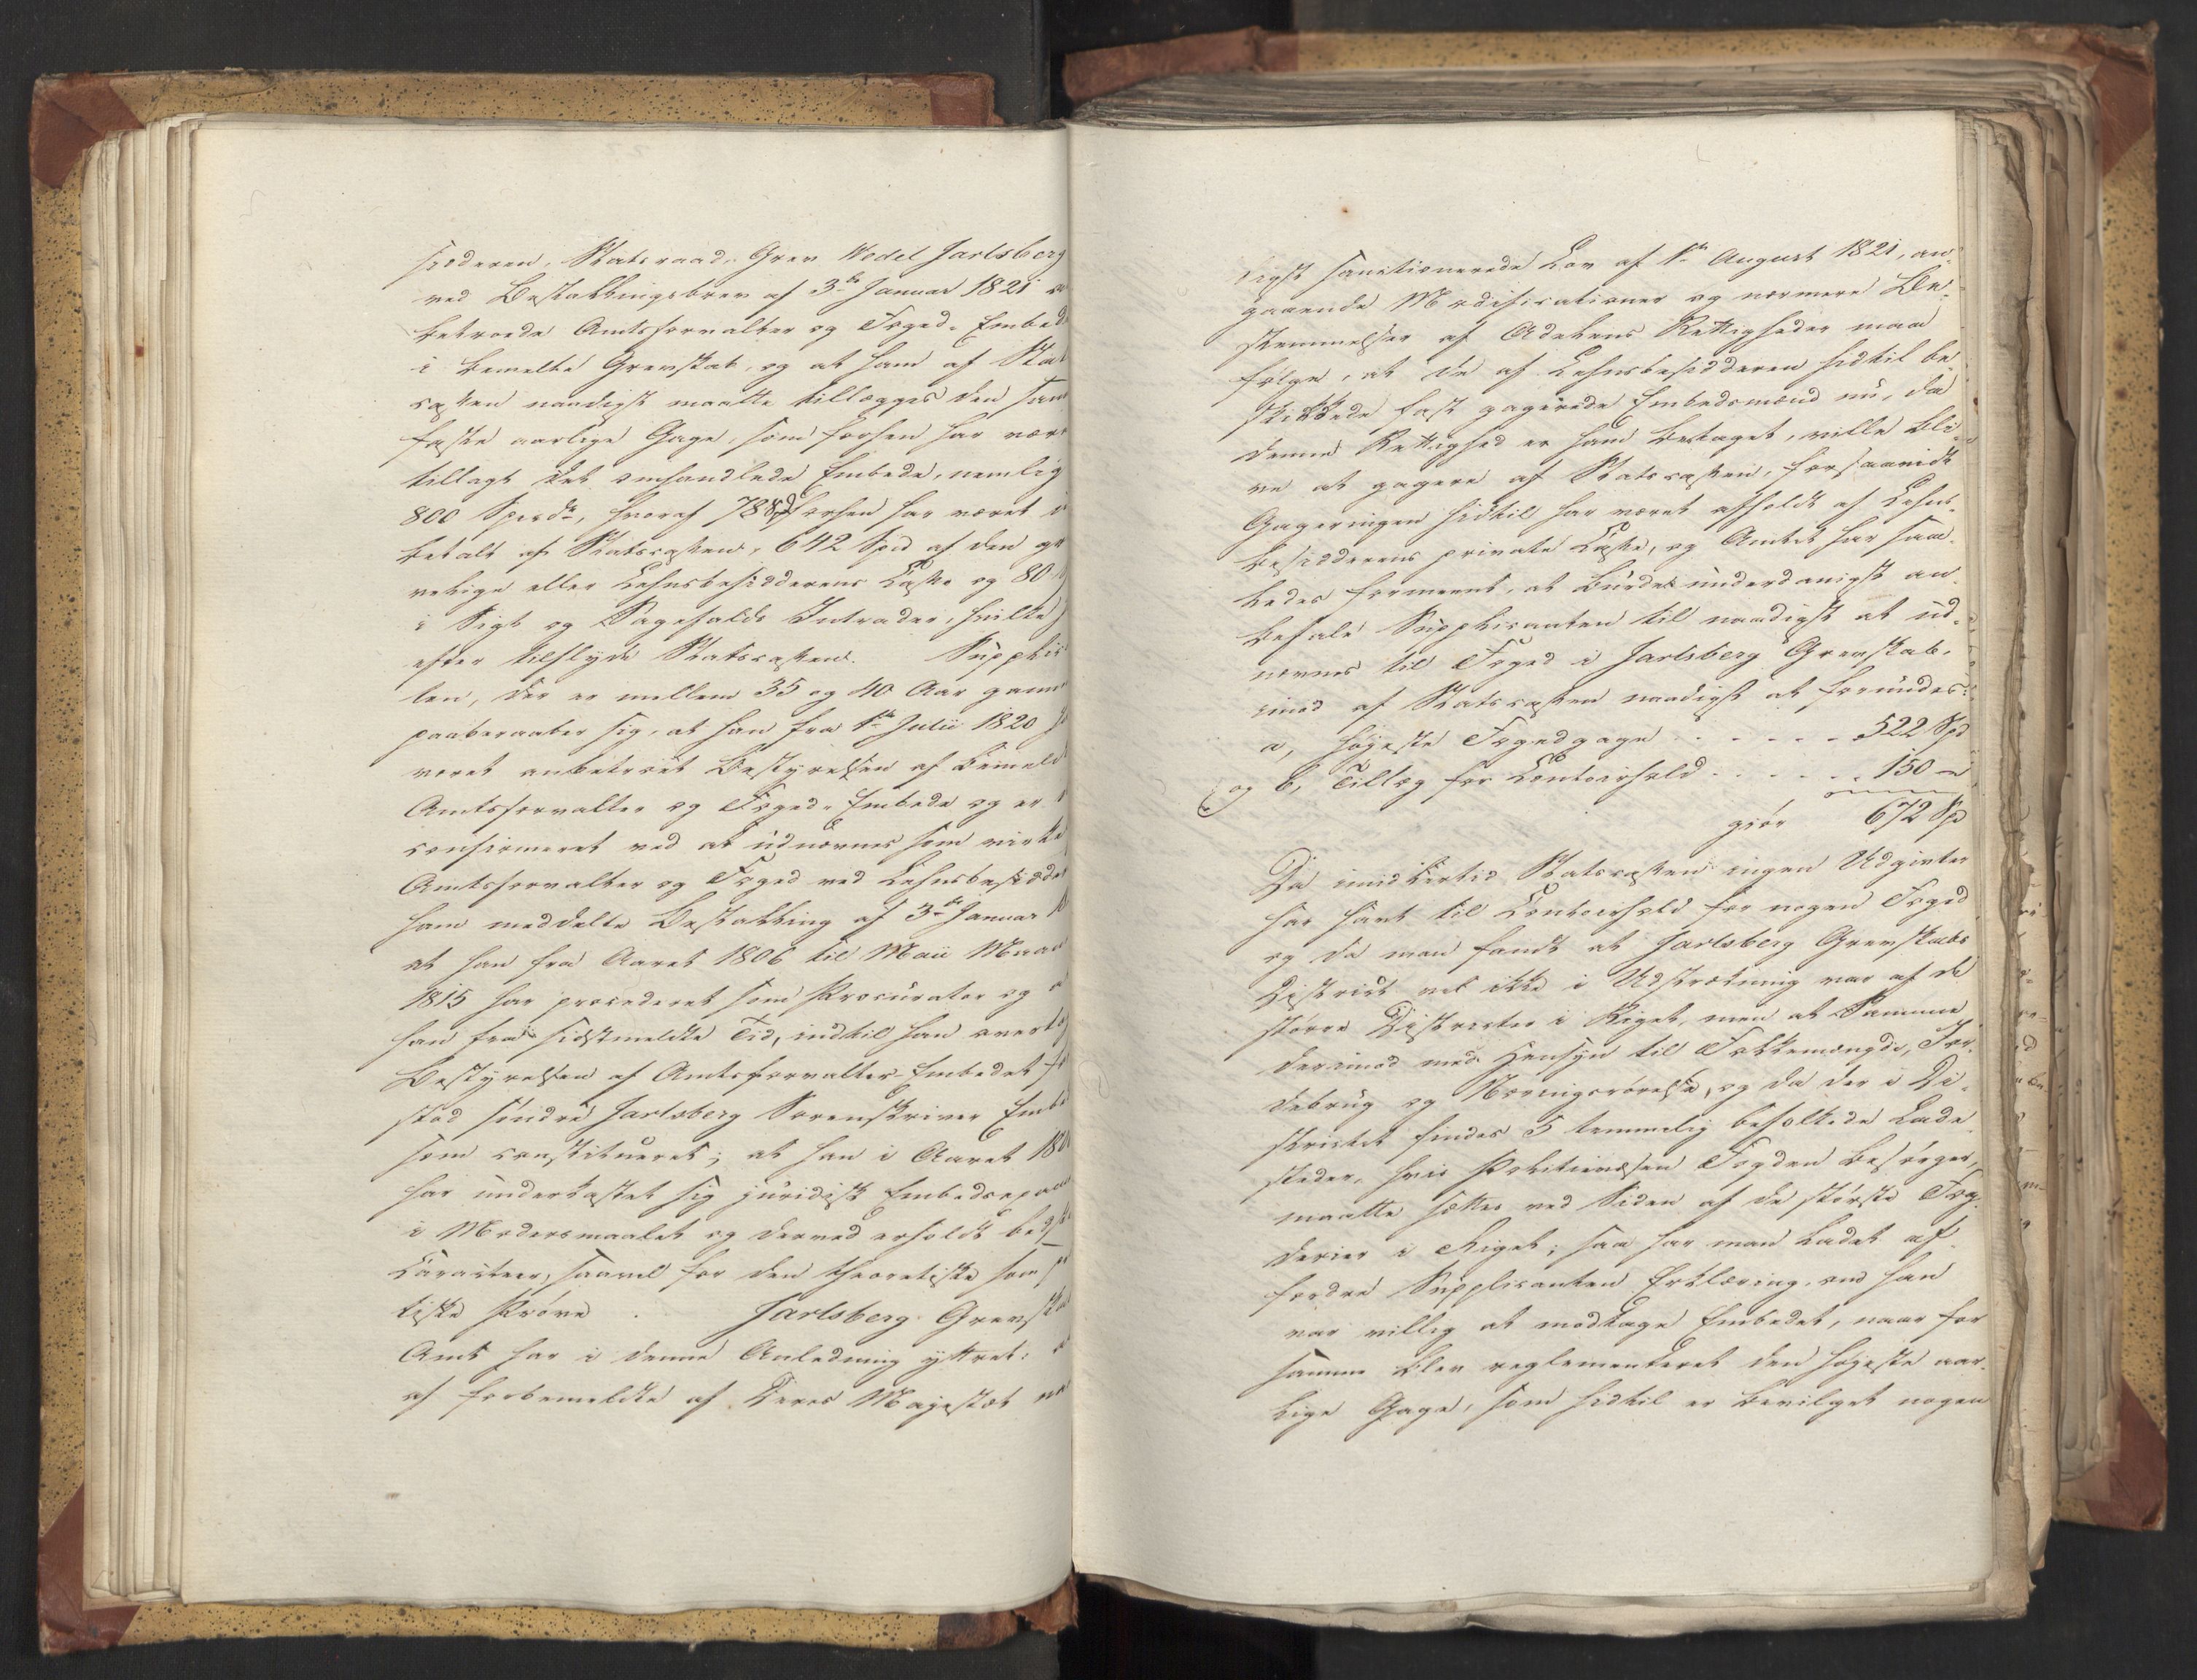 sidderen, Statsraad, Grev Wedel Jarlsberg
ved Bestallingsbrev af 3die Januar 1821
betroede Amtsforvalter og Foged-Embede
i bemelte Grevskab, og at ham af Stat
cassen naadigst maatte tillægges den sam
faste aarlige Gage, som forhen har vært
tillagt det omhandlede Embede, nemlig
800 Specdr, hvoraf 78 Spd forhen har været
betalt af Statscassen, 642 Spd af den gr
velige eller Lehnsbesidderens Casse og 80
i Sigt og Sagefalds Intrader, hvilke
efter tilflyde Statscassen. Supplic
ten, der er mellem 35 og 40 Aar gam
paaberaaber sig, at han fra 1ste Julii 1820
været anbetroet Bestyrelsen af bemeld
Amtsforvalter og Foged-Embede og er
confirmeret ved at udnævnes som virke
Amtsforvalter og Foged ved Lehnsbesidde
ham meddelte Bestalling af 3die Januar
at han fra Aaret 1806 til Maii Maan
1815 har procederet som Procurator og
han fra sidstmeldte Tid, indtil han overtog
Bestyrelsen af Amtsforvalter-Embedet
stod søndre Jarlsberg Sorenskriver Embe
som constitueret; at han i Aaret 18
har underkastet sig juridisk Embedsexam
i Modersmaalet og derved erholdt bedste
Caracteer, saavel for den theoretiske som
tiske Prøve. Jarlsberg Grevska
Amt har i denne Anledning yttret:
af forbemeldte af Deres Majestæt
digst sanctionerede Lov af 1ste August 1821, an-
gaaende Modificationer og nærmere Be-
stemmelser af Adelens Rettigheder maa
følge, at de af Lehnsbesidderen hidtil be-
skikkede fast gagerede Embedsmænd nu, da
denne Rettighed er ham betaget, ville bli-
ve at gagere af Statscassen, forsaavidt
Gageringen hidtil har været afholdt af Lehns-
besidderens private Casse, og Amtet har saa-
ledes formeent, at burde underdanigst an-
befale Supplicanten til naadigst at ud-
nævnes til Foged i Jarlsberg Grevskab,
imod af Statscassen naadigst at forundes:
a, høyeste Fogedgage . . . . . 522 Spd
og b, Tillæg for Contoirhold . . . . . 150 -
giør 672 Spd
Da imidlertid Statscassen ingen Udgivter
har havt til Contoirhold for nogen Foged
og da man fandt at Jarlsberg Grevskabs
District vel ikke i Udstrækning var af de
større Districter i Riget, men at Samme
derimod med Hensyn til Folkemængde, Jor-
debrug og Næringsrørelse, og da der i Di-
strictet findes 5 temmelig befolkede Lade-
steder, hvis Politievæsen Fogden besørger,
maatte sættes ved Siden af de største Fog-
derier i Riget; saa har man ladet af-
fordre Supplicanten Erklæring, om han
var villig at modtage Embedet, naar for
samme blev reglementeret den høyeste aar-
lige Gage, som hidtil er bevilget nogen